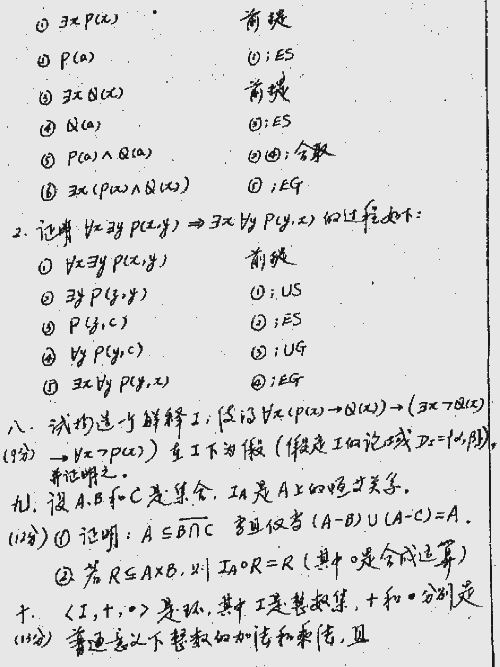 ① ∃xP(x) 前提
② P(a) ①;ES
③ ∃xQ(x) 前提
④ Q(a) ③;ES
⑤ P(a)∧Q(a) ②④;合取
⑥ ∃x(P(x)∧Q(x)) ⑤;EG
2. 证明 ∀x∃yP(x,y) ⇒ ∃x∀yP(y,x) 的过程如下:
① ∀x∃yP(x,y) 前提
② ∃yP(z,y) ①;US
③ P(z,c) ②;ES
④ ∀yP(y,c) ③;UG
⑤ ∃x∀yP(y,x) ④;EG
八. 试构造一个解释I,使得 ∀x(P(x)→Q(x))→(∃x¬Q(x)
(9分) →∀x¬P(x)) 在I下为假(假定I的论域 D_I={α,β}),
并证明之.
九. 设A、B和C是集合, I_A是A上的恒等关系.
(12分) ① 证明: A⊆\overline{B∩C} 当且仅当 (A-B)∪(A-C)=A.
② 若 R⊆A×B, 则 I_A∘R=R (其中∘是合成运算)
十. <I,+,•> 是环,其中I是整数集,+和•分别是
(13分) 普通意义下整数的加法和乘法,且